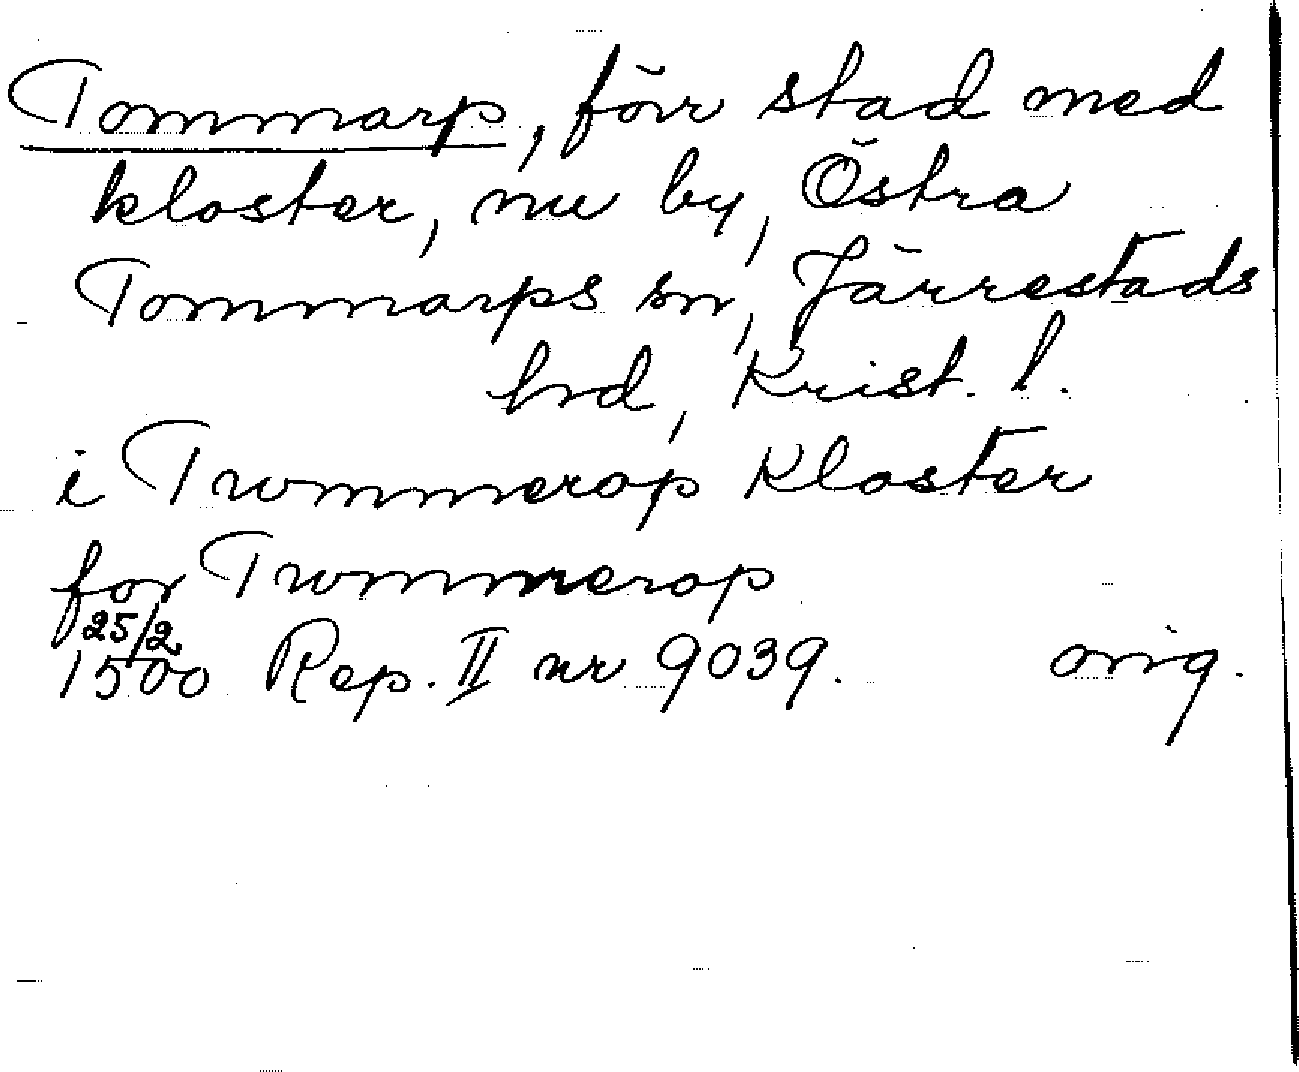 Tommarp, förr stad med
kloster, nu by, Östra
Tommarps sn, Järrestads
hrd, Krist. l.
i Twmmerop Kloster
for Twmmerop
25/2
1500 Rep. II nr 9039. orig.